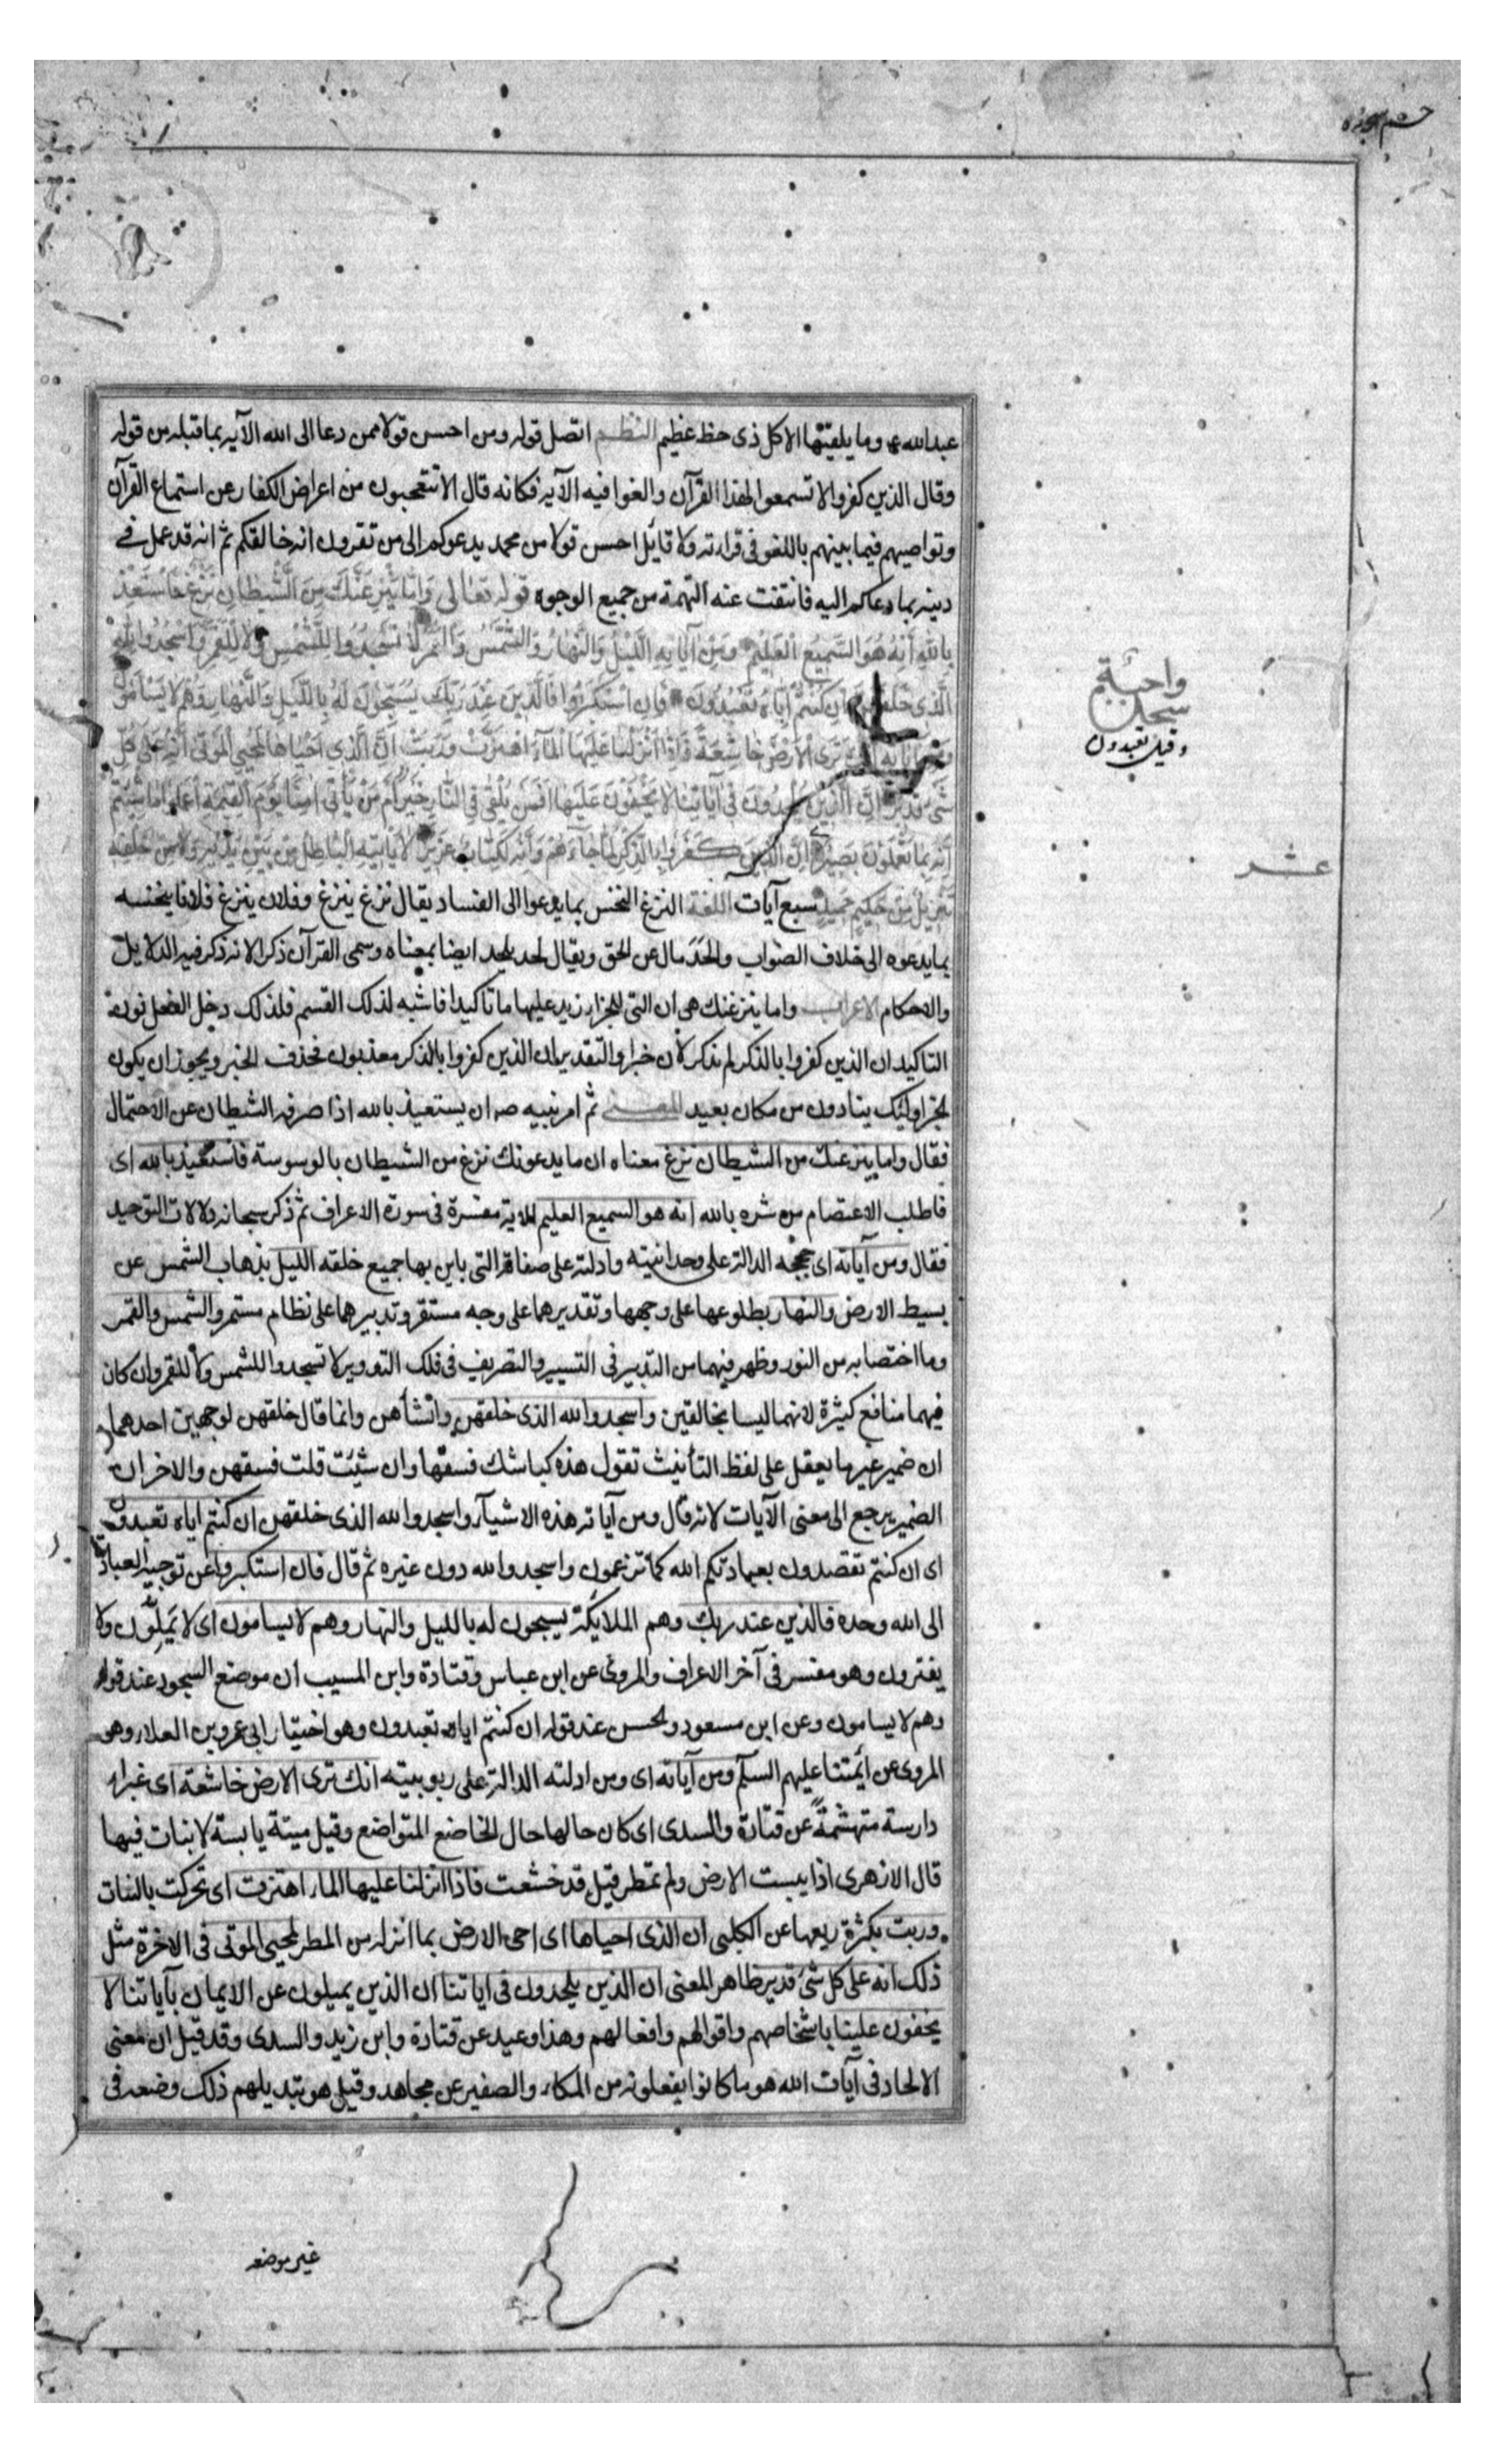 حم سجده
عبد الله ع وما يلقيها الا كل ذى حظ عظيم النظم اتصل قوله ومن احسن قولا ممن دعا الى الله الآية بما قبله من قوله
وقال الذين كفروا لا تسمعوا لهذا القرآن والغوا فيه الآية فكانه قال الا تتعجبون من اعراض الكفار عن استماع القرآن
وتواصيهم فيما بينهم باللغو فى قراءته ولا قائل احسن قولا من محمد يدعوكم الى من تقرون انه خالقكم ثم انه قد عمل فى
دينه بما دعاكم اليه فانتفت عنه التهمة من جميع الوجوه قوله تعالى وَاِمّا يَنْزَغَنَّكَ مِنَ الشَّيْطانِ نَزْغٌ فَاسْتَعِذْ
بِاللهِ اِنَّهُ هُوَ السَّمِيعُ الْعَلِيمُ وَمِنْ آياتِهِ اللَّيْلُ وَالنَّهارُ وَالشَّمْسُ وَالْقَمَرُ لا تَسْجُدُوا لِلشَّمْسِ وَلا لِلْقَمَرِ وَاسْجُدُوا لِلّهِ
الَّذى خَلَقَهُنَّ اِنْ كُنْتُمْ اِيّاهُ تَعْبُدُونَ فَاِنِ اسْتَكْبَرُوا فَالَّذينَ عِنْدَ رَبِّكَ يُسَبِّحُونَ لَهُ بِاللَّيْلِ وَالنَّهارِ وَهُمْ لا يَسْأَمُونَ
وَمِنْ آياتِهِ اَنَّكَ تَرَى الْاَرْضَ خاشِعَةً فَاِذا اَنْزَلْنا عَلَيْهَا الْمآءَ اهْتَزَّتْ وَرَبَتْ اِنَّ الَّذي اَحْياها لَمُحْيِي الْمَوْتى اِنَّهُ عَلى كُلِّ
شَىْءٍ قَديرٌ اِنَّ الَّذينَ يُلْحِدُونَ فى آياتِنا لا يَخْفَوْنَ عَلَيْنا اَفَمَنْ يُلْقى فِى النّارِ خَيْرٌ اَمْ مَنْ يَأْتى آمِنًا يَوْمَ الْقِيمَةِ اِعْمَلُوا ما شِئْتُمْ
اِنَّهُ بِما تَعْمَلُونَ بَصيرٌ اِنَّ الَّذينَ كَفَرُوا بِالذِّكْرِ لَمّا جآءَهُمْ وَاِنَّهُ لَكِتابٌ عَزيزٌ لا يَأْتيهِ الْباطِلُ مِنْ بَيْنِ يَدَيْهِ وَلا مِنْ خَلْفِهِ
تَنْزيلٌ مِنْ حَكيمٍ حَميدٍ سبع آيات اللغة النزغ النخس بما يدعوا الى الفساد يقال نزغ ينزغ وفلان ينزغ فلانا ينخسه
بما يدعوه الى خلاف الصواب والحد مال عن الحق ويقال لحد يلحد ايضا بمعناه وسمى القرآن ذكرا لانه ذكر فيه الدلايل
والاحكام الاعراب واما ينزغنك هى ان التى للجزاء زيد عليها ما تاكيدا فاشبه لذلك القسم فلذلك دخل الفعل نون
التاكيد ان الذين كفروا بالذكر لم يذكر لان خبرا والتقدير ان الذين كفروا بالذكر معذبون فحذف الخبر ويجوز ان يكون
لخبر اولئك ينادون من مكان بعيد المعنى ثم امر نبيه صه ان يستعيذ بالله اذا صرفه الشيطان عن الاحتمال
فقال واما ينزغنك من الشيطان نزغ معناه ان ما يدعونك نزغ من الشيطان بالوسوسة فاستعيذ بالله اى
فاطلب الاعتصام من شره بالله انه هو السميع العليم الاية مفسرة فى سورة الاعراف ثم ذكر سبحانه دلالات التوحيد
فقال ومن آياته اى حججه الدالة على وحدانيته وادلته على صفاته التى باين بها جميع خلقه الليل بذهاب الشمس عن
بسيط الارض والنهار بطلوعها على وجهها وتقديرهما على وجه مستقر وتدبيرهما على نظام مستمر والشمس والقمر
وما اختصا به من النور وظهر فيهما من التدبير فى التسيير والتصريف فى فلك التدوير لا تسجدوا للشمس ولا للقمر وان كان
فيهما منافع كثيرة لانهما ليسا بخالقين واسجدوا لله الذى خلقهن وانشأهن وانما قال خلقهن لوجهين احدهما
ان ضمير غير ما يعقل على لفظ التأنيث تقول هذه كباشك فسقها وان شئت قلت فسقهن والاخر ان
الضمير يرجع الى معنى الآيات لانه قال ومن آياته هذه الاشيآء واسجدوا لله الذى خلقهن ان كنتم اياه تعبدون
اى ان كنتم تقصدون بعبادتكم الله كما تزعمون واسجدوا لله دون غيره ثم قال فان استكبروا عن توجيه العبادة
الى الله وحده فالذين عند ربك وهم الملايكة يسبحون له بالليل والنهار وهم لا يسامون اى لا يَمَلّون ولا
يفترون وهو مفسر فى آخر الاعراف والمروى عن ابن عباس وقتادة وابن المسيب ان موضع السجود عند قوله
وهم لا يسامون وعن ابن مسعود ولحسن عند قوله ان كنتم اياه تعبدون وهو اختيار ابى عمرو بن العلاء وهو
المروى عن أئمتنا عليهم السلم ومن آياته اى ومن ادلته الدالة على ربوبيته انك ترى الارض خاشعة اى غبراء
دارسة متهشمةً عن قتادة والسدى اى كان حالها حال الخاضع المتواضع وقيل ميتة يابسة لا نبات فيها
قال الازهرى اذا يبست الارض ولم تمطر قيل قد خشعت فاذا انزلنا عليها الماء اهتزت اى تحركت بالنبات
وربت بكثرة ريعها عن الكلبى ان الذى احياها اى احى الارض بما أنزله من المطر لمحيى الموتى فى الاخرة مثل
ذلك انه على كل شئ قدير ظاهر المعنى ان الذين يلحدون فى اياتنا ان الذين يميلون عن الايمان بآياتنا لا
يخفون علينا باشخاصهم واقوالهم وافعالهم وهذا وعيد عن قتادة وابن زيد والسدى وقد قيل ان معنى
الالحاد فى آيات الله هو ما كانوا يفعلونه من المكاء والصفير عن مجاهد وقيل هو تبديلهم ذلك وضعه فى
واجبة
سجدة
وقيل تعبدون
عشر
غير موضعه